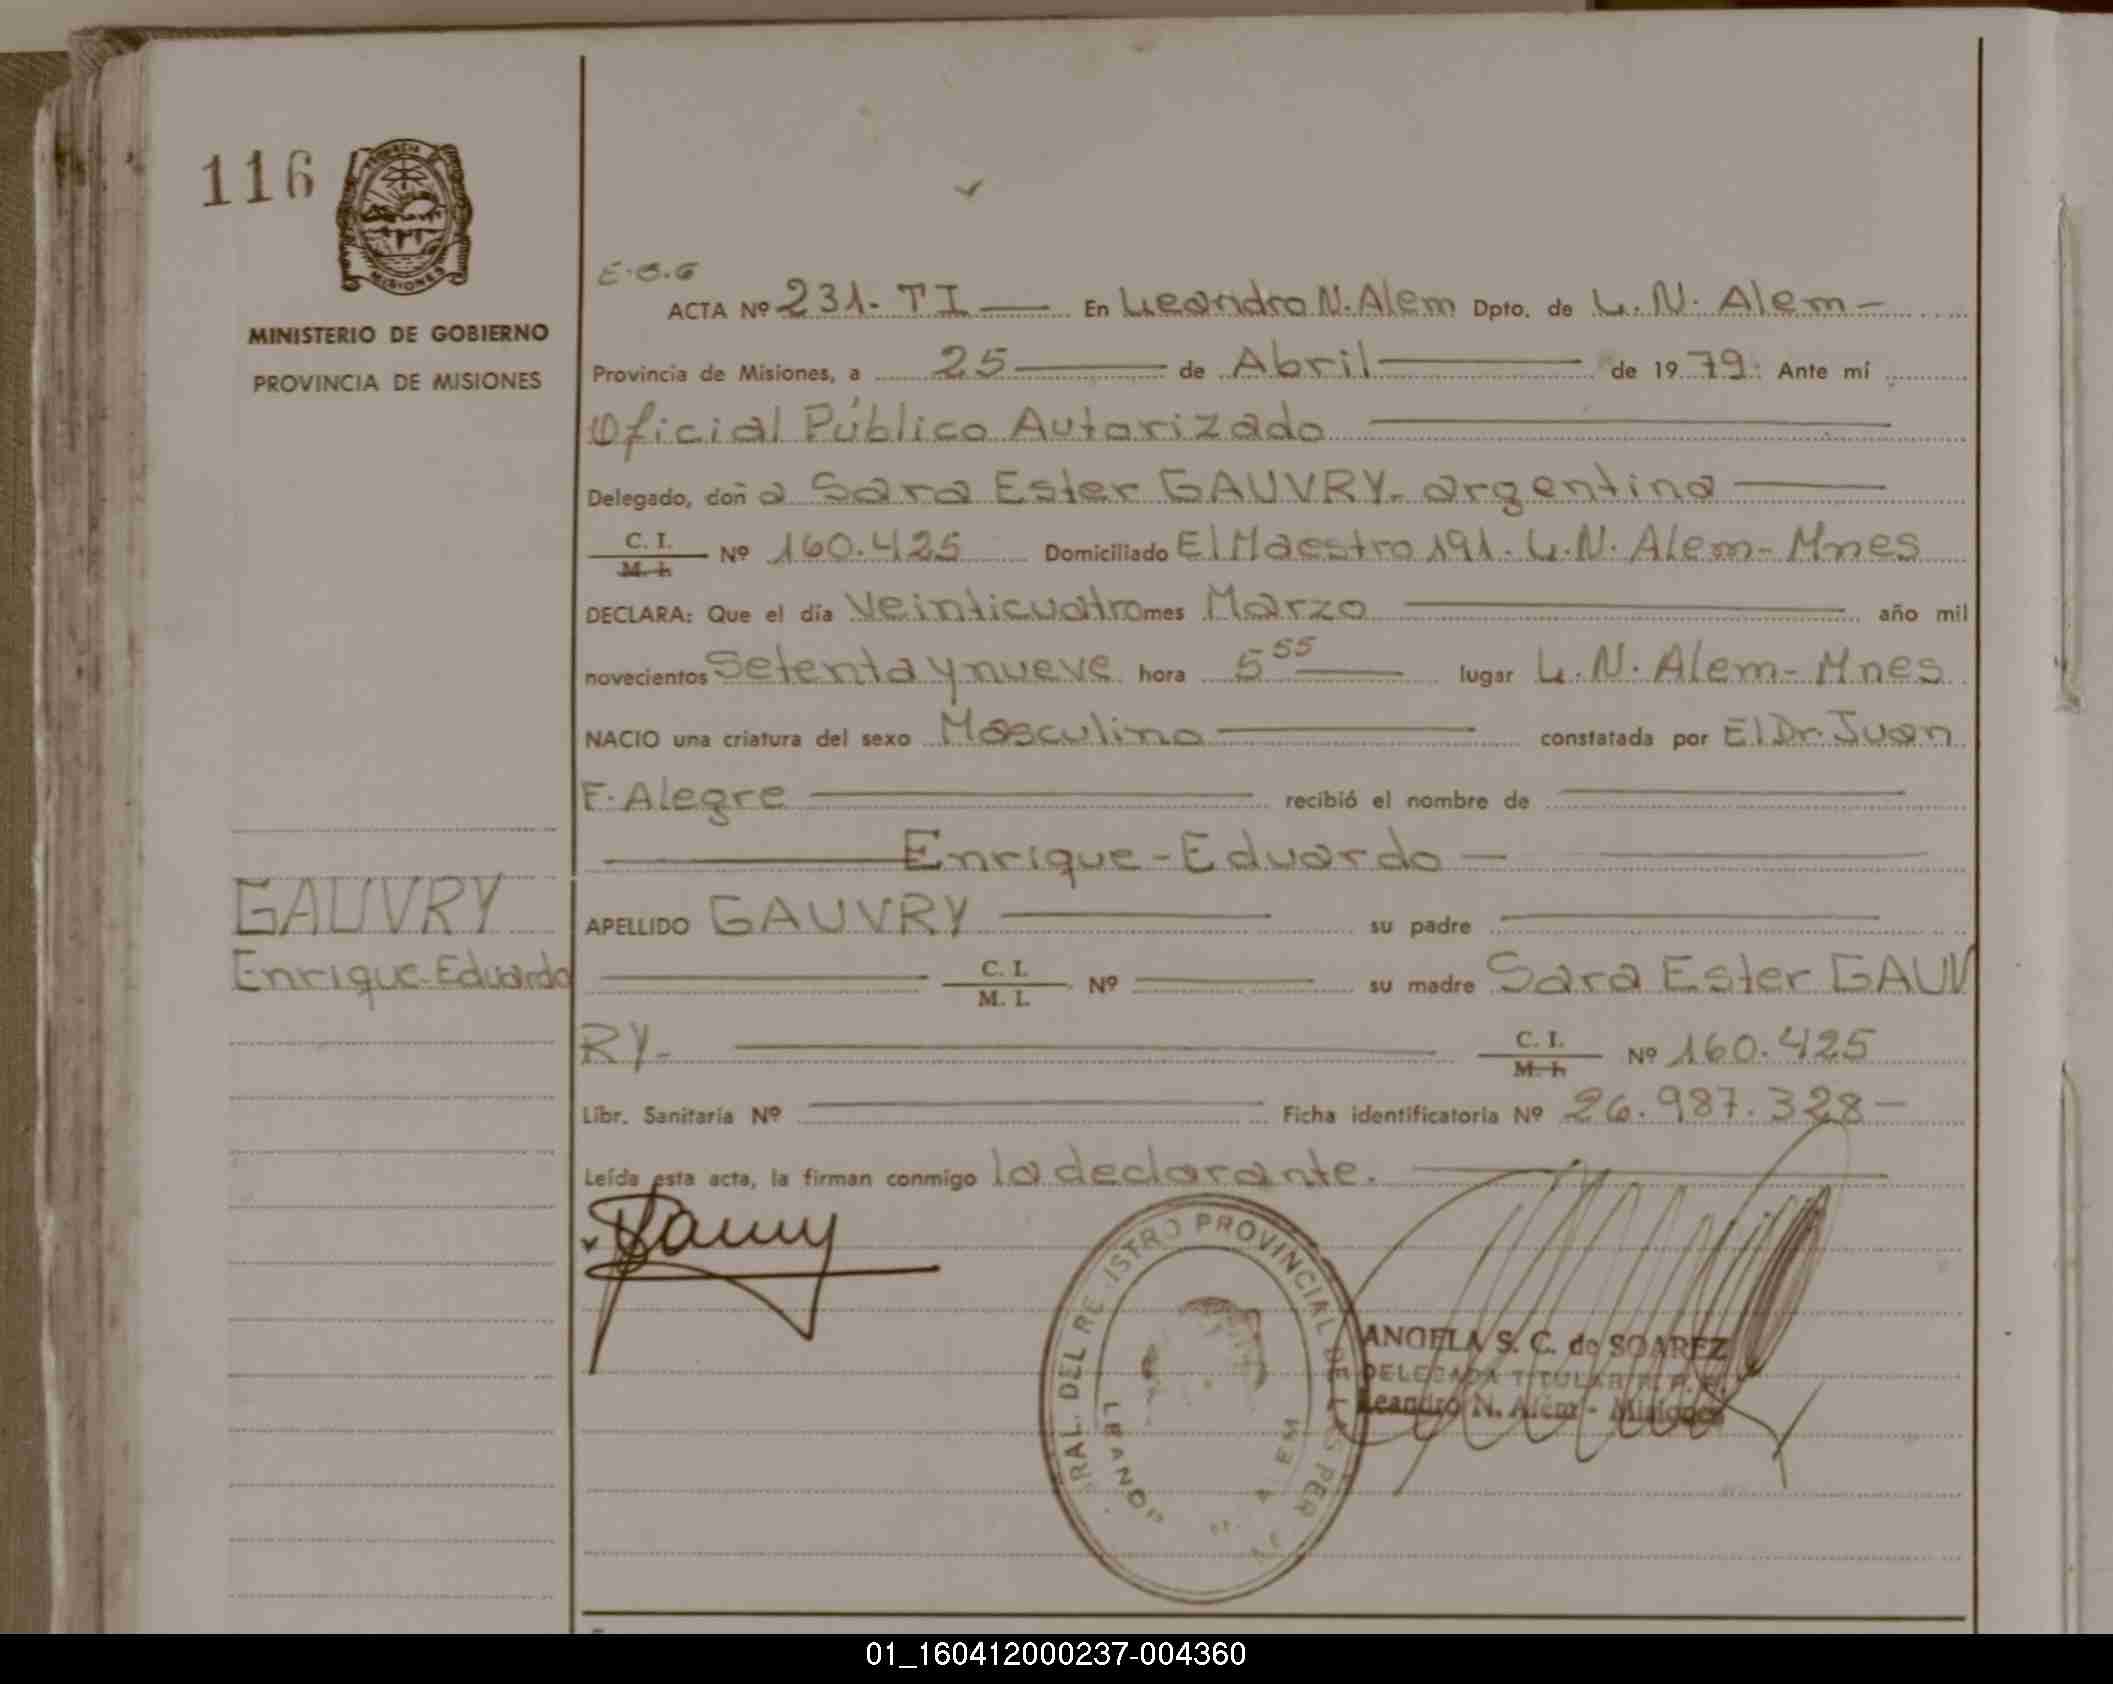 116
PROVINCIA DE
MISIONES
MINISTERIO DE GOBIERNO
PROVINCIA DE MISIONES
GAUVRY
Enrique-Eduardo
E.E.G
ACTA Nº 231- TI — En Leandro N. Alem Dpto. de L. N. Alem -
Provincia de Misiones, a 25 — de Abril — de 19 79. Ante mí
Oficial Público Autorizado
Delegado, doña Sara Ester GAUVRY. argentina
C. I. / M. I. Nº 160.425 Domiciliado El Maestro 191. L. N. Alem - Mnes
DECLARA: Que el día Veinticuatro mes Marzo — año mil
novecientos Setenta y nueve hora 5 55 — lugar L. N. Alem - Mnes
NACIO una criatura del sexo Masculino — constatada por El Dr. Juan
F. Alegre — recibió el nombre de —
Enrique - Eduardo —
APELLIDO GAUVRY — su padre —
— C. I. / M. I. Nº — su madre Sara Ester GAUV
RY- — C. I. / M. I. Nº 160.425
Libr. Sanitaria Nº — Ficha identificatoria Nº 26.987.328 —
Leída esta acta, la firman conmigo la declarante.
RAL. DEL RE ISTRO PROVINCIAL DE L S PER
LEANDR
A EM
ANGELA S. C. de SOAREZ
DELEGADA TITULAR R. P. P.
Leandro N. Alem - Misiones
01_160412000237-004360